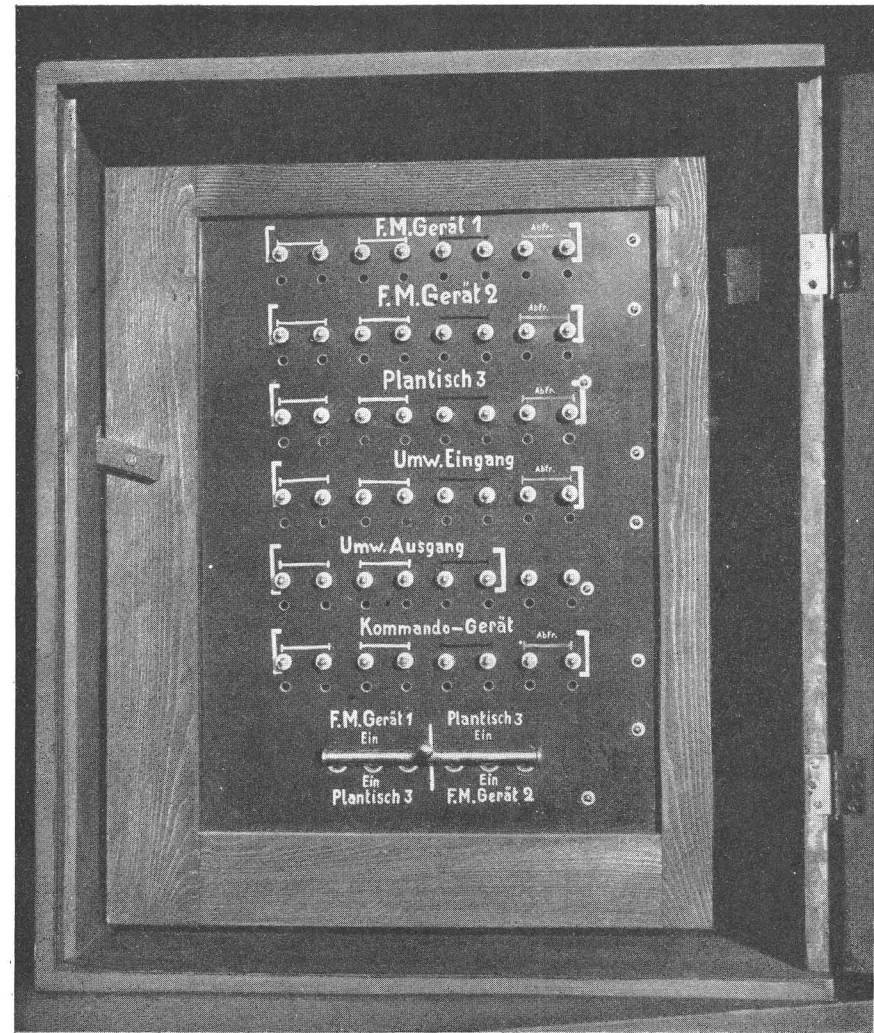 F.M.Gerät 1
Abfr.
F.M.Gerät 2
Abfr.
Plantisch 3
Abfr.
Umw.Eingang
Abfr.
Umw.Ausgang
Kommando-Gerät
Abfr.
F.M.Gerät 1 Plantisch 3
Ein Ein
Ein Ein
Plantisch 3 F.M.Gerät 2